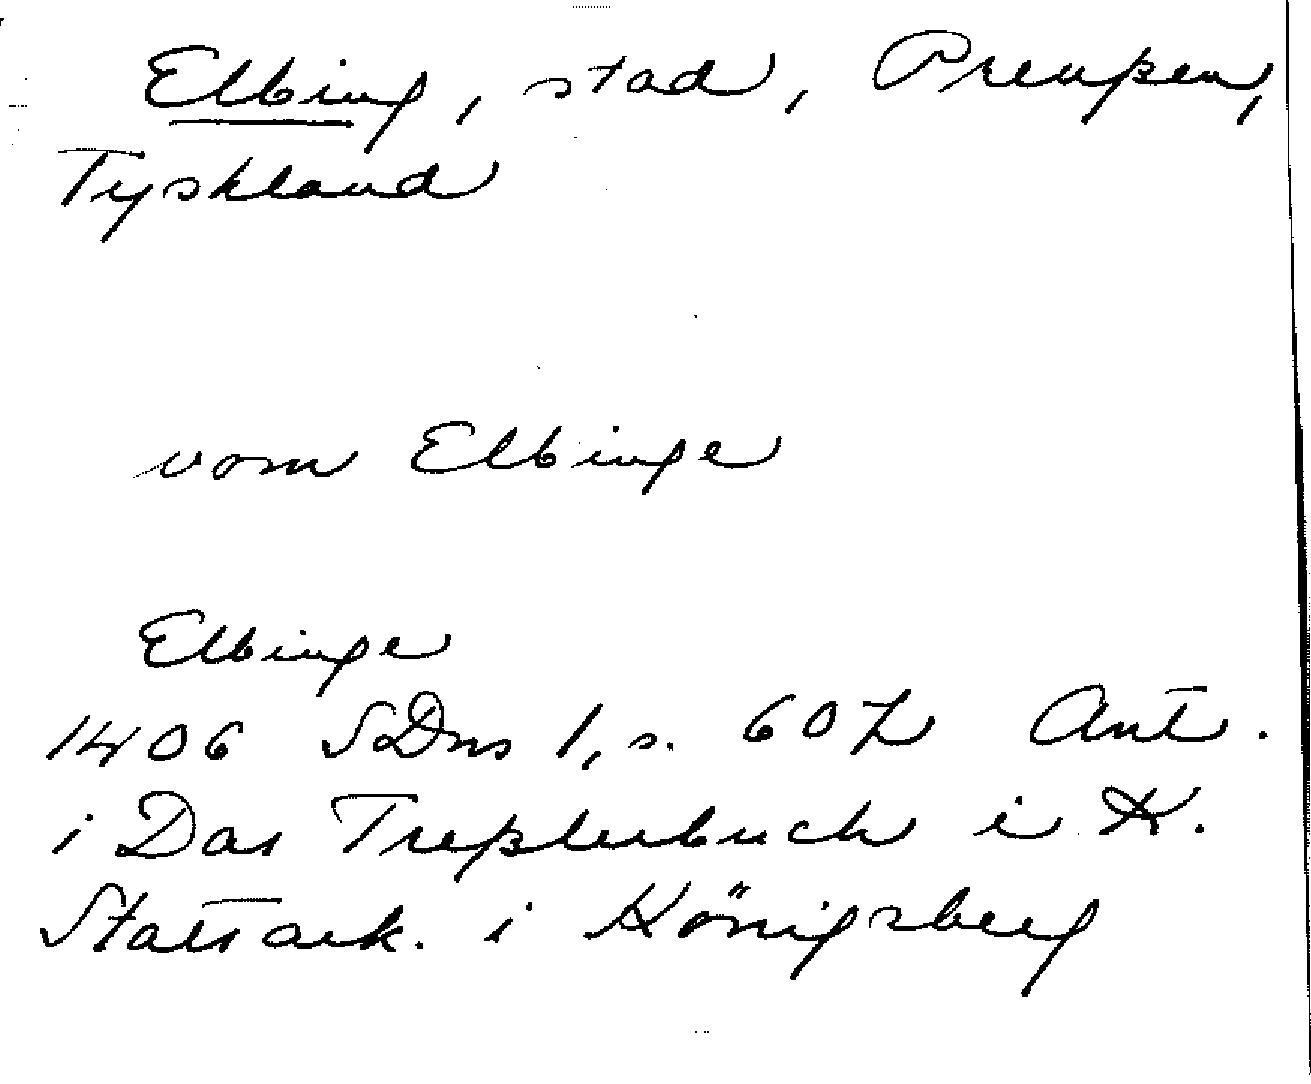 Elbing, stad, Preußen,
Tyskland
vom Elbinge
Elbinge
1406 SDns 1, s. 607 Ant.
i Das Treßlerbuch i K.
Statsark. i Königsberg